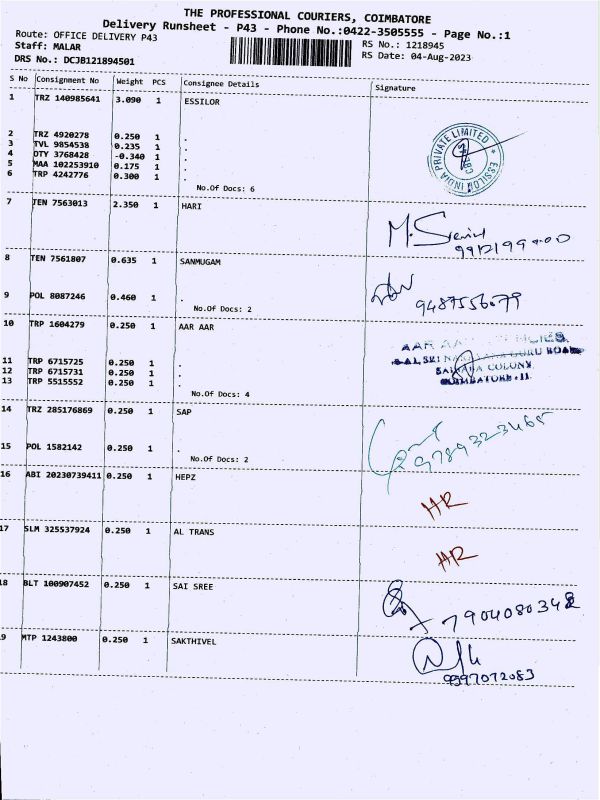 THE PROFESSIONAL COURIERS, COIMBATORE
Delivery Runsheet - P43 - Phone No.:0422-3505555 - Page No.:1
Route: OFFICE DELIVERY P43
RS No.: 1218945
Staff: MALAR
RS Date: 04-Aug-2023
DRS No.: DCJB121894501
S No Consignment No Weight PCS Consignee Details Signature
1 TRZ 140985641 3.090 1 ESSILOR
2 TRZ 4920278 0.250 1 .
3 TVL 9854538 0.235 1 .
4 DTY 3768428 -0.340 1 .
5 MAA 102253910 0.175 1 .
6 TRP 4242776 0.300 1 .
ESSILOR INDIA PRIVATE LIMITED
No.Of Docs: 6
7 TEN 7563013 2.350 1 HARI
8 TEN 7561807 0.635 1 SANMUGAM
9 POL 8087246 0.460 1 .
9487556079
No.Of Docs: 2
10 TRP 1604279 0.250 1 AAR AAR
11 TRP 6715725 0.250 1 .
12 TRP 6715731 0.250 1 .
13 TRP 5515552 0.250 1 .
COLONY,
COIMBATORE-11
No.Of Docs: 4
14 TRZ 285176869 0.250 1 SAP
9789323465
15 POL 1582142 0.250 1 .
No.Of Docs: 2
16 ABI 20230739411 0.250 1 HEPZ
HR
17 SLM 325537924 0.250 1 AL TRANS
HR
18 BLT 100907452 0.250 1 SAI SREE
7904080348
19 MTP 1243800 0.250 1 SAKTHIVEL
9597072083